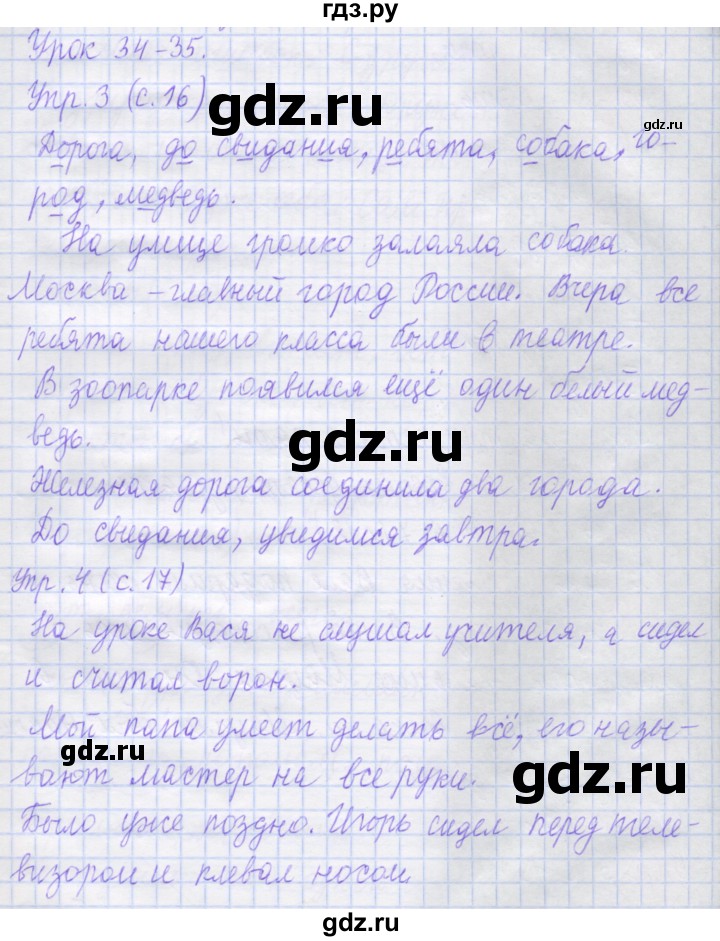 гдз.ру
Урок 34-35.
Упр. 3 (с. 16)
gdz.ru
gdz.ru
Дорога, до свидания, ребята, собака, го-
род, медведь.
На улице громко залаяла собака.
Москва – главный город России. Вчера все
ребята нашего класса были в театре.
В зоопарке появился ещё один белый мед-
ведь.
gdz.ru
Железная дорога соединила два города.
До свидания, увидимся завтра.
Упр. 4 (с. 17)
На уроке Вася не слушал учителя, а сидел
и считал ворон.
Мой папа умеет делать всё, его назы-
gdz.ru
вают мастер на все руки.
gdz.ru
Было уже поздно. Игорь сидел перед теле-
визором и клевал носом.
gdz.ru